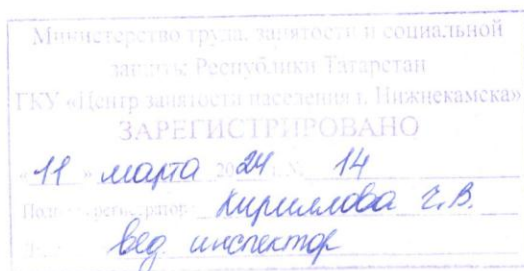 Министерство труда, занятости и социальной
защиты Республики Татарстан
ГКУ «Центр занятости населения г. Нижнекамска»
ЗАРЕГИСТРИРОВАНО
«11» марта 2024 г. № 14
Кириллова Г.В.
вед. инспектор